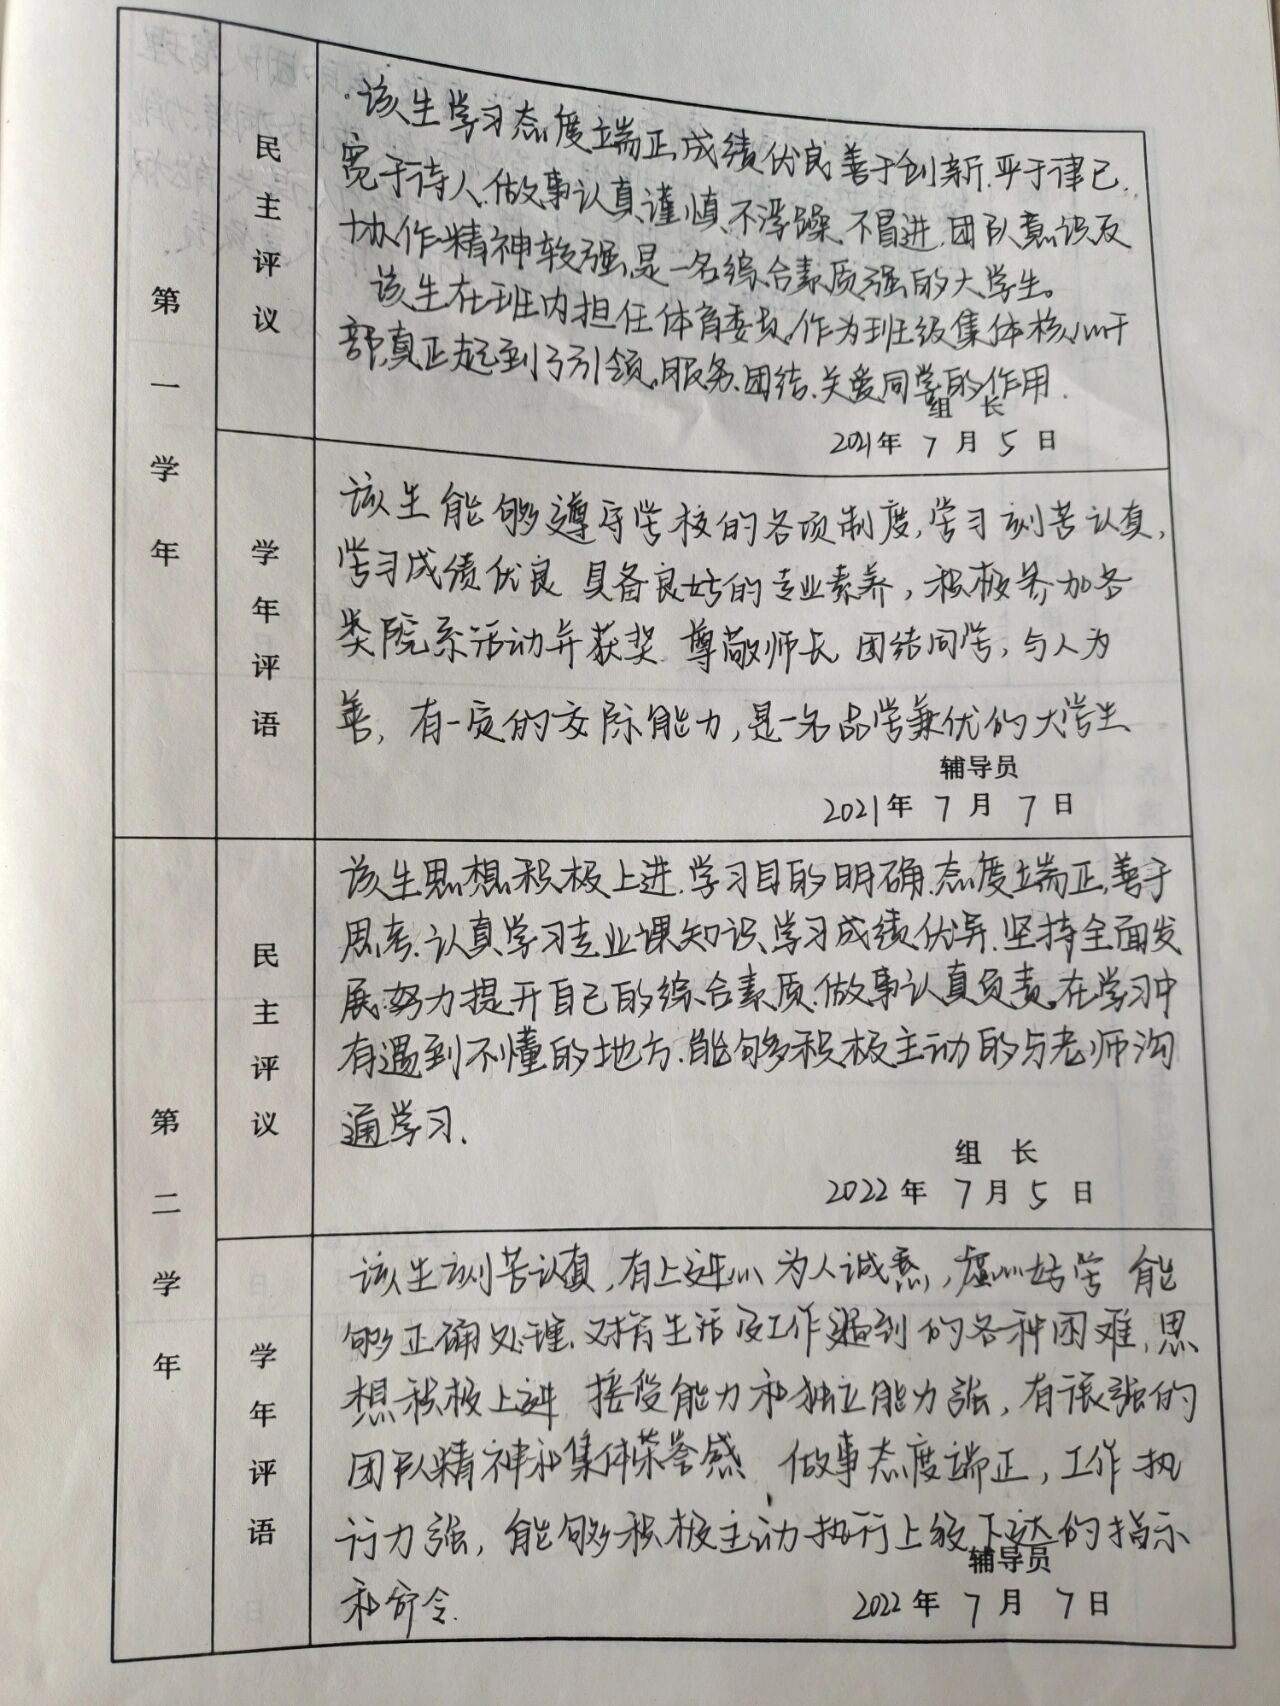 第一学年
民主评议
该生学习态度端正,成绩优良,善于创新.严于律己.
宽于待人.做事认真谨慎,不浮躁,不冒进.团队意识及
协作精神较强,是一名综合素质强的大学生。
该生在班内担任体育委员,作为班级集体核心干
部,真正起到了引领、服务、团结、关爱同学的作用.
组 长
2021年 7 月 5 日
学年评语
该生能够遵守学校的各项制度,学习刻苦认真,
学习成绩优良 具备良好的专业素养,积极参加各
类院系活动并获奖 尊敬师长 团结同学,与人为
善,有一定的交际能力,是一名品学兼优的大学生
辅导员
2021年 7 月 7 日
第二学年
民主评议
该生思想积极上进.学习目的明确.态度端正,善于
思考.认真学习专业课知识,学习成绩优异.坚持全面发
展.努力提升自己的综合素质.做事认真负责.在学习中
有遇到不懂的地方.能够积极主动的与老师沟
通学习.
组 长
2022年 7 月 5 日
学年评语
该生刻苦认真,有上进心 为人诚恳,虚心好学 能
够正确处理、对待生活及工作遇到的各种困难,思
想积极上进 接受能力和独立能力强,有很强的
团队精神和集体荣誉感 做事态度端正,工作执
行力强,能够积极主动执行上级下达的指示
和命令.
辅导员
2022年 7 月 7 日